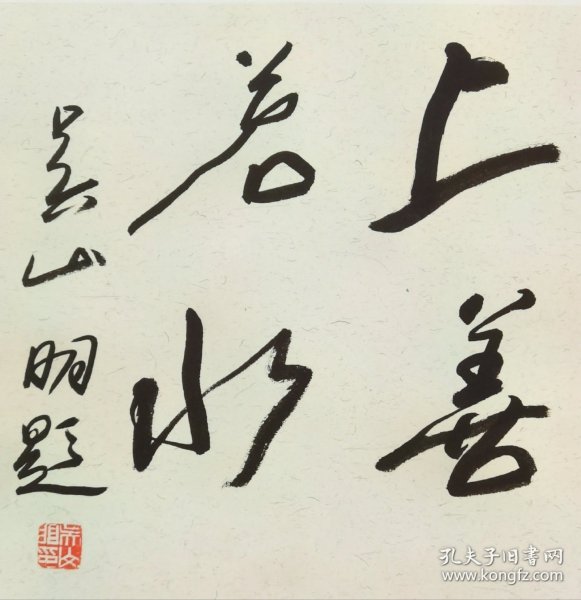 上善
若水
吴山明题
孔夫子旧书网
www.kongfz.com